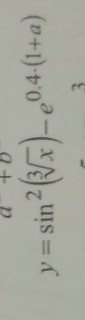 a + b
y = sin²(∛x) − e^0.4·(1+a)
3
5